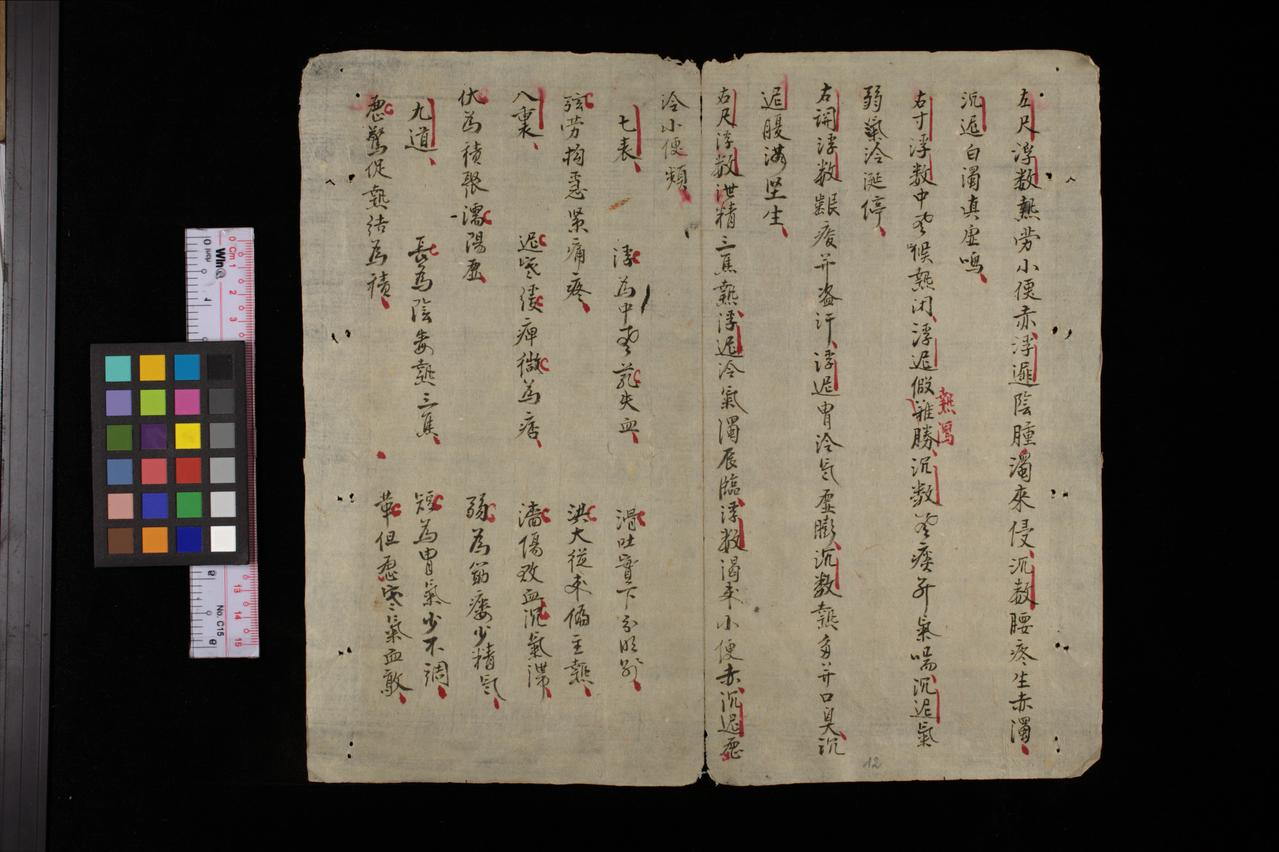 左尺浮数熱劳小便赤浮遲陰腫濁來侵沉数腰疼生赤濁
沉迟白濁真虚鳴
右寸浮数中風候熱闭浮迟假雖勝沉数痰并氣喘沉迟氣
熱瀉
弱氣冷涎停
右関浮数艱疲并盗汗浮迟胃冷氣虚膨沉数熱多并口臭沉
迟腹满坚生
右尺浮数泄精三焦熱浮迟冷氣濁辰臨浮数渴來小便赤沉迟虚
冷小便頻
七表 浮為中風芤失血 滑吐實下分明别
弦劳拘急緊痛疼 洪大從來偏主熱
八裏 迟寒緩痺微為痞 濇傷敗血沉氣滞
伏為積聚濡陽虚 弱為筋痿少精氣
九道 長為陰毒熱三焦 短為胃氣少不調
急驚促熱结為積 革但虚寒氣血散
12